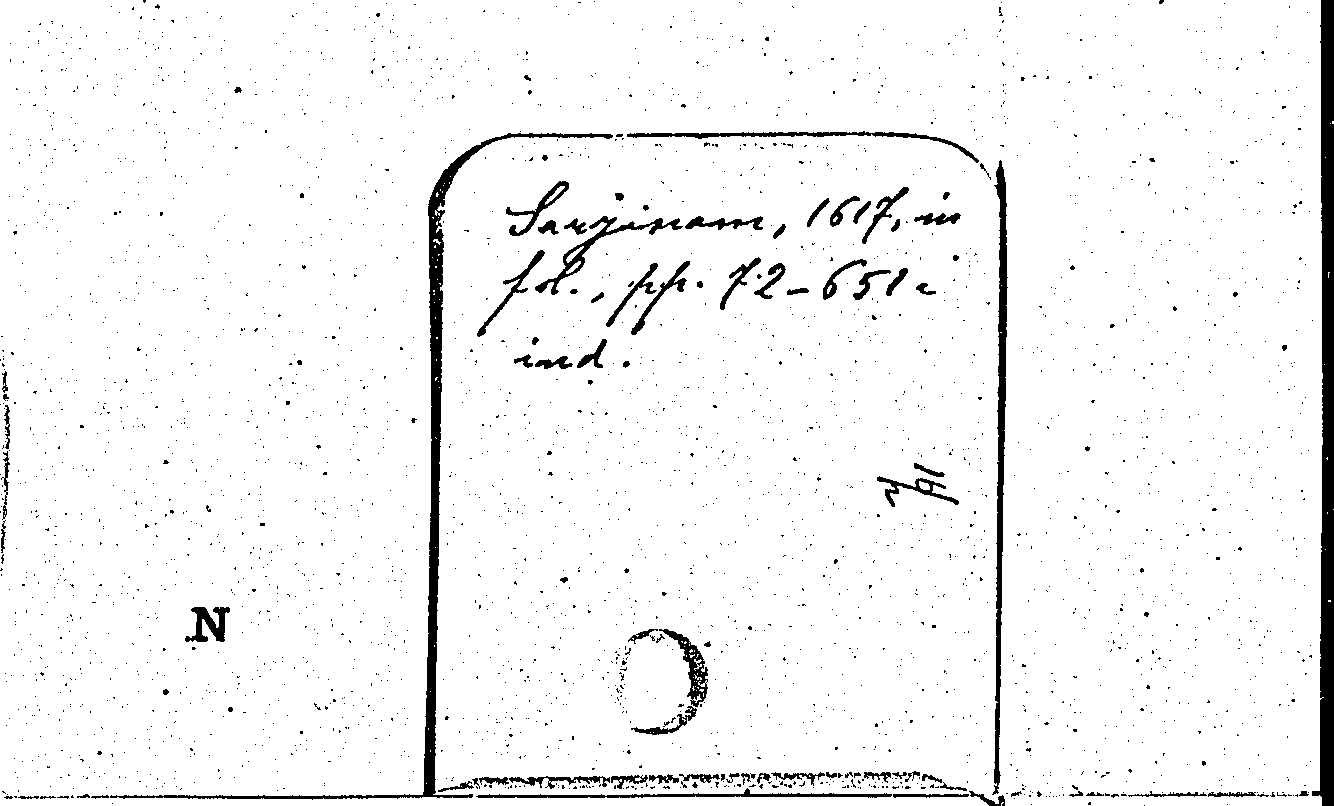 Sarzinam, 1617, in
fol., pp. 72-651 e
ind.
N